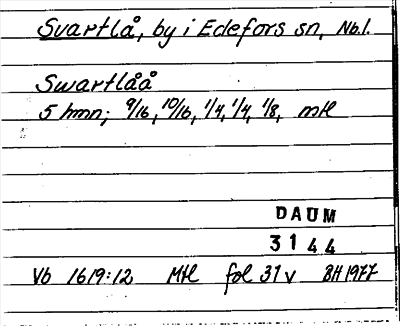 Svartlå, by i Edefors sn, Nb.l.
Swartlåå
5 hmn; 9/16, 10/16, 1/4, 1/4, 1/8, mtl
DAUM
3144
Vb 1619:12 Mtl fol 31v BH 1977